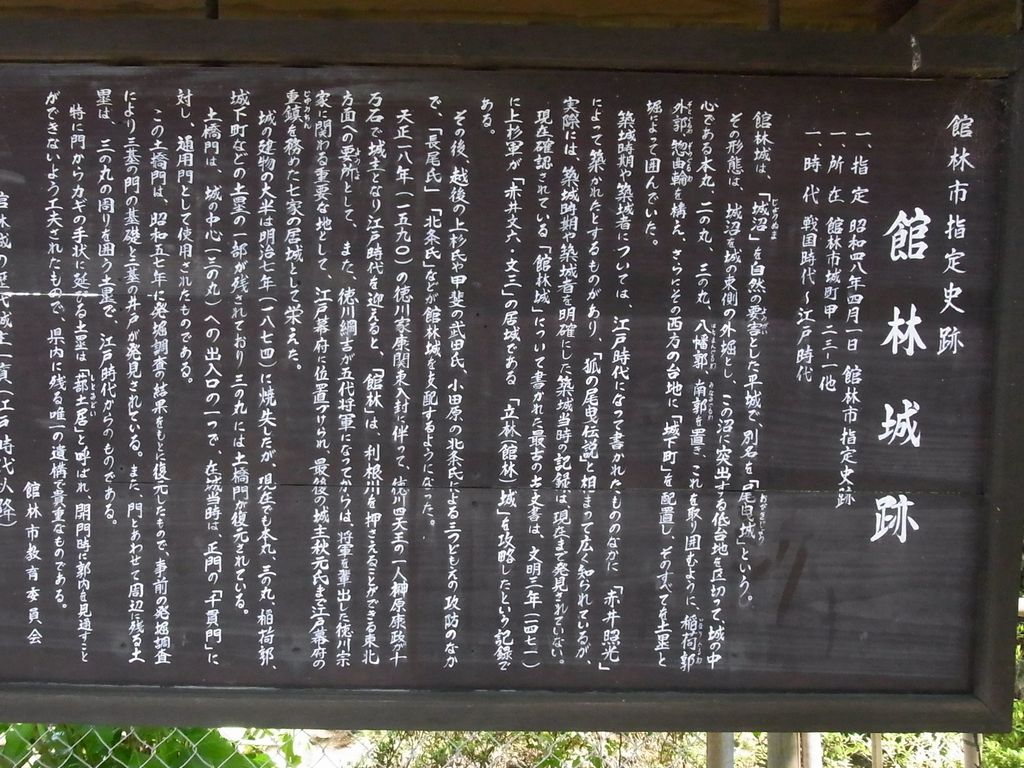 館林市指定史跡
館林城跡
一、指定 昭和四八年四月一日 館林市指定史跡
一、所在 館林市城町甲二三ー一他
一、時代 戦国時代～江戸時代
館林城は、「城沼」を自然の要害とした平城で、別名を「尾曳城」という。
その形態は、城沼を城の東側の外堀とし、この沼に突出する低台地を区切って、城の中
心である本丸、二の丸、三の丸、八幡郭、南郭を置き、これを取り囲むように、稲荷郭、
外郭、惣曲輪を構え、さらにその西方の台地に「城下町」を配置し、そのすべてを土塁と
堀によって囲んでいた。
築城時期や築城者については、江戸時代になって書かれたもののなかに「赤井照光」
によって築かれたとするものがあり、「狐の尾曳伝説」と相まって広く知られているが、
実際には、築城時期や築城者を明確にした築城当時の記録は、現在まで発見されていない。
現在確認されている「館林城」について書かれた最古の古文書は、文明三年(一四七一)
に上杉軍が「赤井文六・文三」の居城である「立林(館林)城」を攻略したという記録で
ある。
その後、越後の上杉氏や甲斐の武田氏、小田原の北条氏による三つどもえの攻防のなか
で、「長尾氏」「北条氏」などが館林城を支配するようになった。
天正一八年(一五九〇)の徳川家康関東入封に伴って、徳川四天王の一人榊原康政が十
万石で城主となり江戸時代を迎えると、「館林」は、利根川を押さえることができる東北
方面への要所として、また、徳川綱吉が五代将軍になってからは、将軍を輩出した徳川宗
家に関わる重要な地として、江戸幕府に位置づけられ、最後の城主秋元氏まで江戸幕府の
重鎮を務めた七家の居城として栄えた。
城の建物の大半は明治七年(一八七四)に焼失したが、現在でも本丸、三の丸、稲荷郭、
城下町などの土塁の一部が残されており、三の丸には土橋門が復元されている。
土橋門は、城の中心(三の丸)への出入口の一つで、在城当時は、正門の「千貫門」に
対し、通用門として使用されたものである。
この土橋門は、昭和五七年に発掘調査の結果をもとに復元したもので、事前の発掘調査
により三基の門の基礎と一基の井戸が発見されている。また、門とあわせて周辺に残る土
塁は、三の丸の周りを囲う土塁で、江戸時代からのものである。
特に門からカギの手状に延びる土塁は「蔀土居」と呼ばれ、開門時に郭内を見通すこと
ができないよう工夫されたもので、県内に残る唯一の遺構で貴重なものである。
館林市教育委員会
館林城の歴代城主一覧(江戸時代以降)